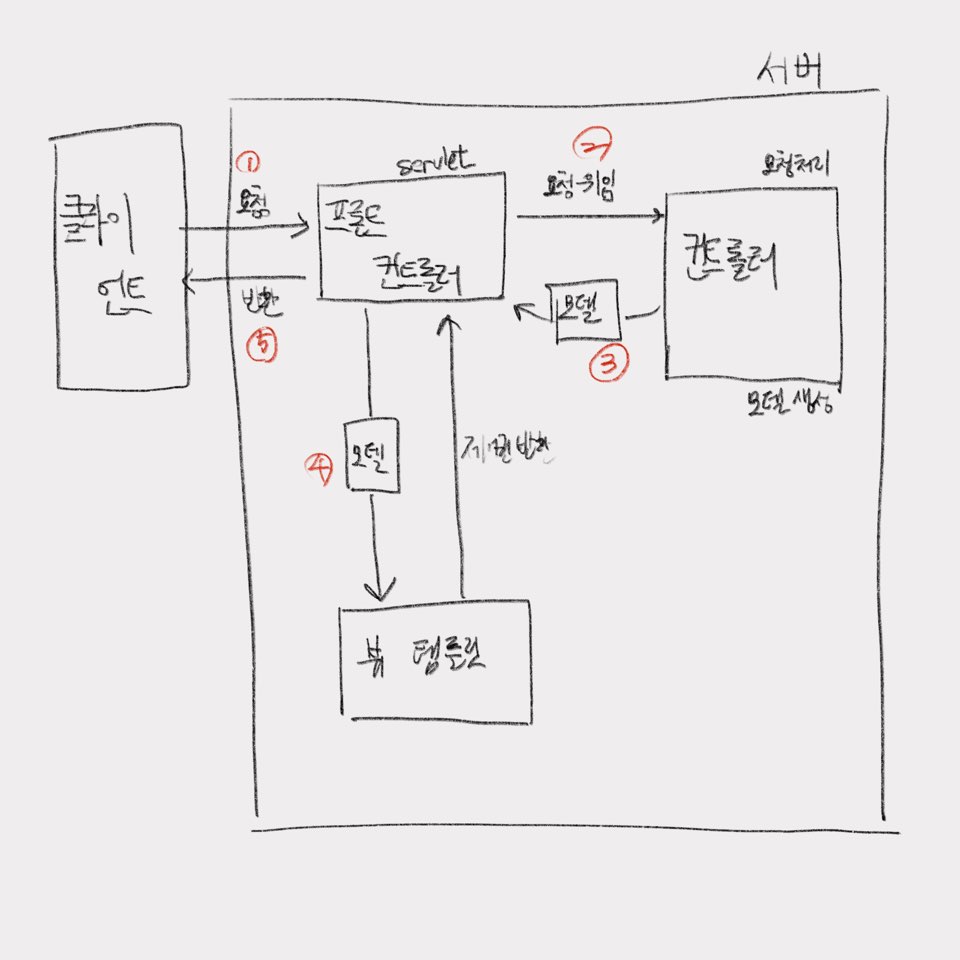 서버
클라이
언트
①
요청
servlet
프론트
컨트롤러
②
요청 위임
요청처리
컨트롤러
모델
③
모델 생성
반환
⑤
④
모델
제어권 반환
뷰 템플릿